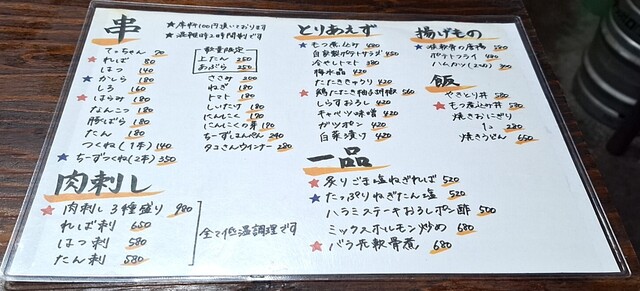 串
★席料100円頂いております
★混雑時2時間制です
てっちゃん 70
★ればー 80
はつ 140
★かしら 180
しろ 160
★はらみ 180
なんこつ 180
豚しばら 180
たん 180
つくね(1本) 140
★ちーずつくね(2本) 350
数量限定
上たん 250
あぶら 250
ささみ 200
ねぎ 180
トマト 180
しいたけ 180
にんにく 190
にんにくの芽 180
ちーずはんぺん 240
タコさんウインナー 280
肉刺し
★肉刺し3種盛り 980
ればー刺 650
はつ刺 580
たん刺 580
全て低温調理です
とりあえず
★もつ煮込み 480
自家製ポテトサラダ 450
冷やしトマト 380
梅水晶 420
たたききゅうり 420
★鶏たたき柚子胡椒
しらすおろし 420
キャベツ味噌 420
ガツポン 420
白菜漬り 420
一品
★炙りごま塩ねぎれば 520
★たっぷりねぎたん塩 520
ハラミステーキおろしポン酢 600
ミックスホルモン炒め 680
★バラ先軟骨煮 680
揚げもの
ポテトフライ
ハムカツ
飯
やきとり丼 580
★もつ煮込み丼 580
焼きおにぎり
1コ 280
焼きうどん 650